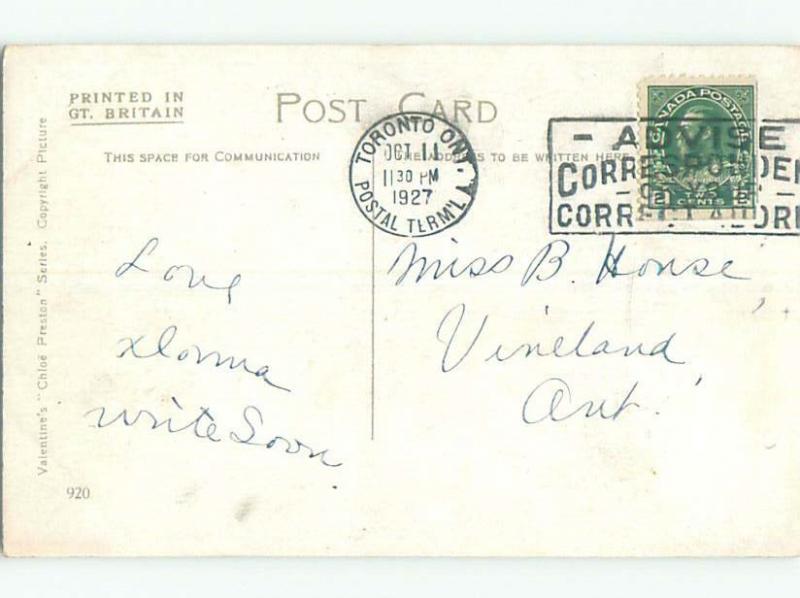 PRINTED IN
GT. BRITAIN
POST CARD
THIS SPACE FOR COMMUNICATION
ADDRESS TO BE WRITTEN HERE
TORONTO ONT.
OCT 11
11 30 PM
1927
POSTAL TERM'L A
CANADA POSTAGE
2 CENTS
- ADVISE
CORRESPONDEN
CORRECT ADDR
Valentine's "Chloë Preston" Series. Copyright Picture
Love
Write Soon
Miss B. House,
Vineland
Ont.
920